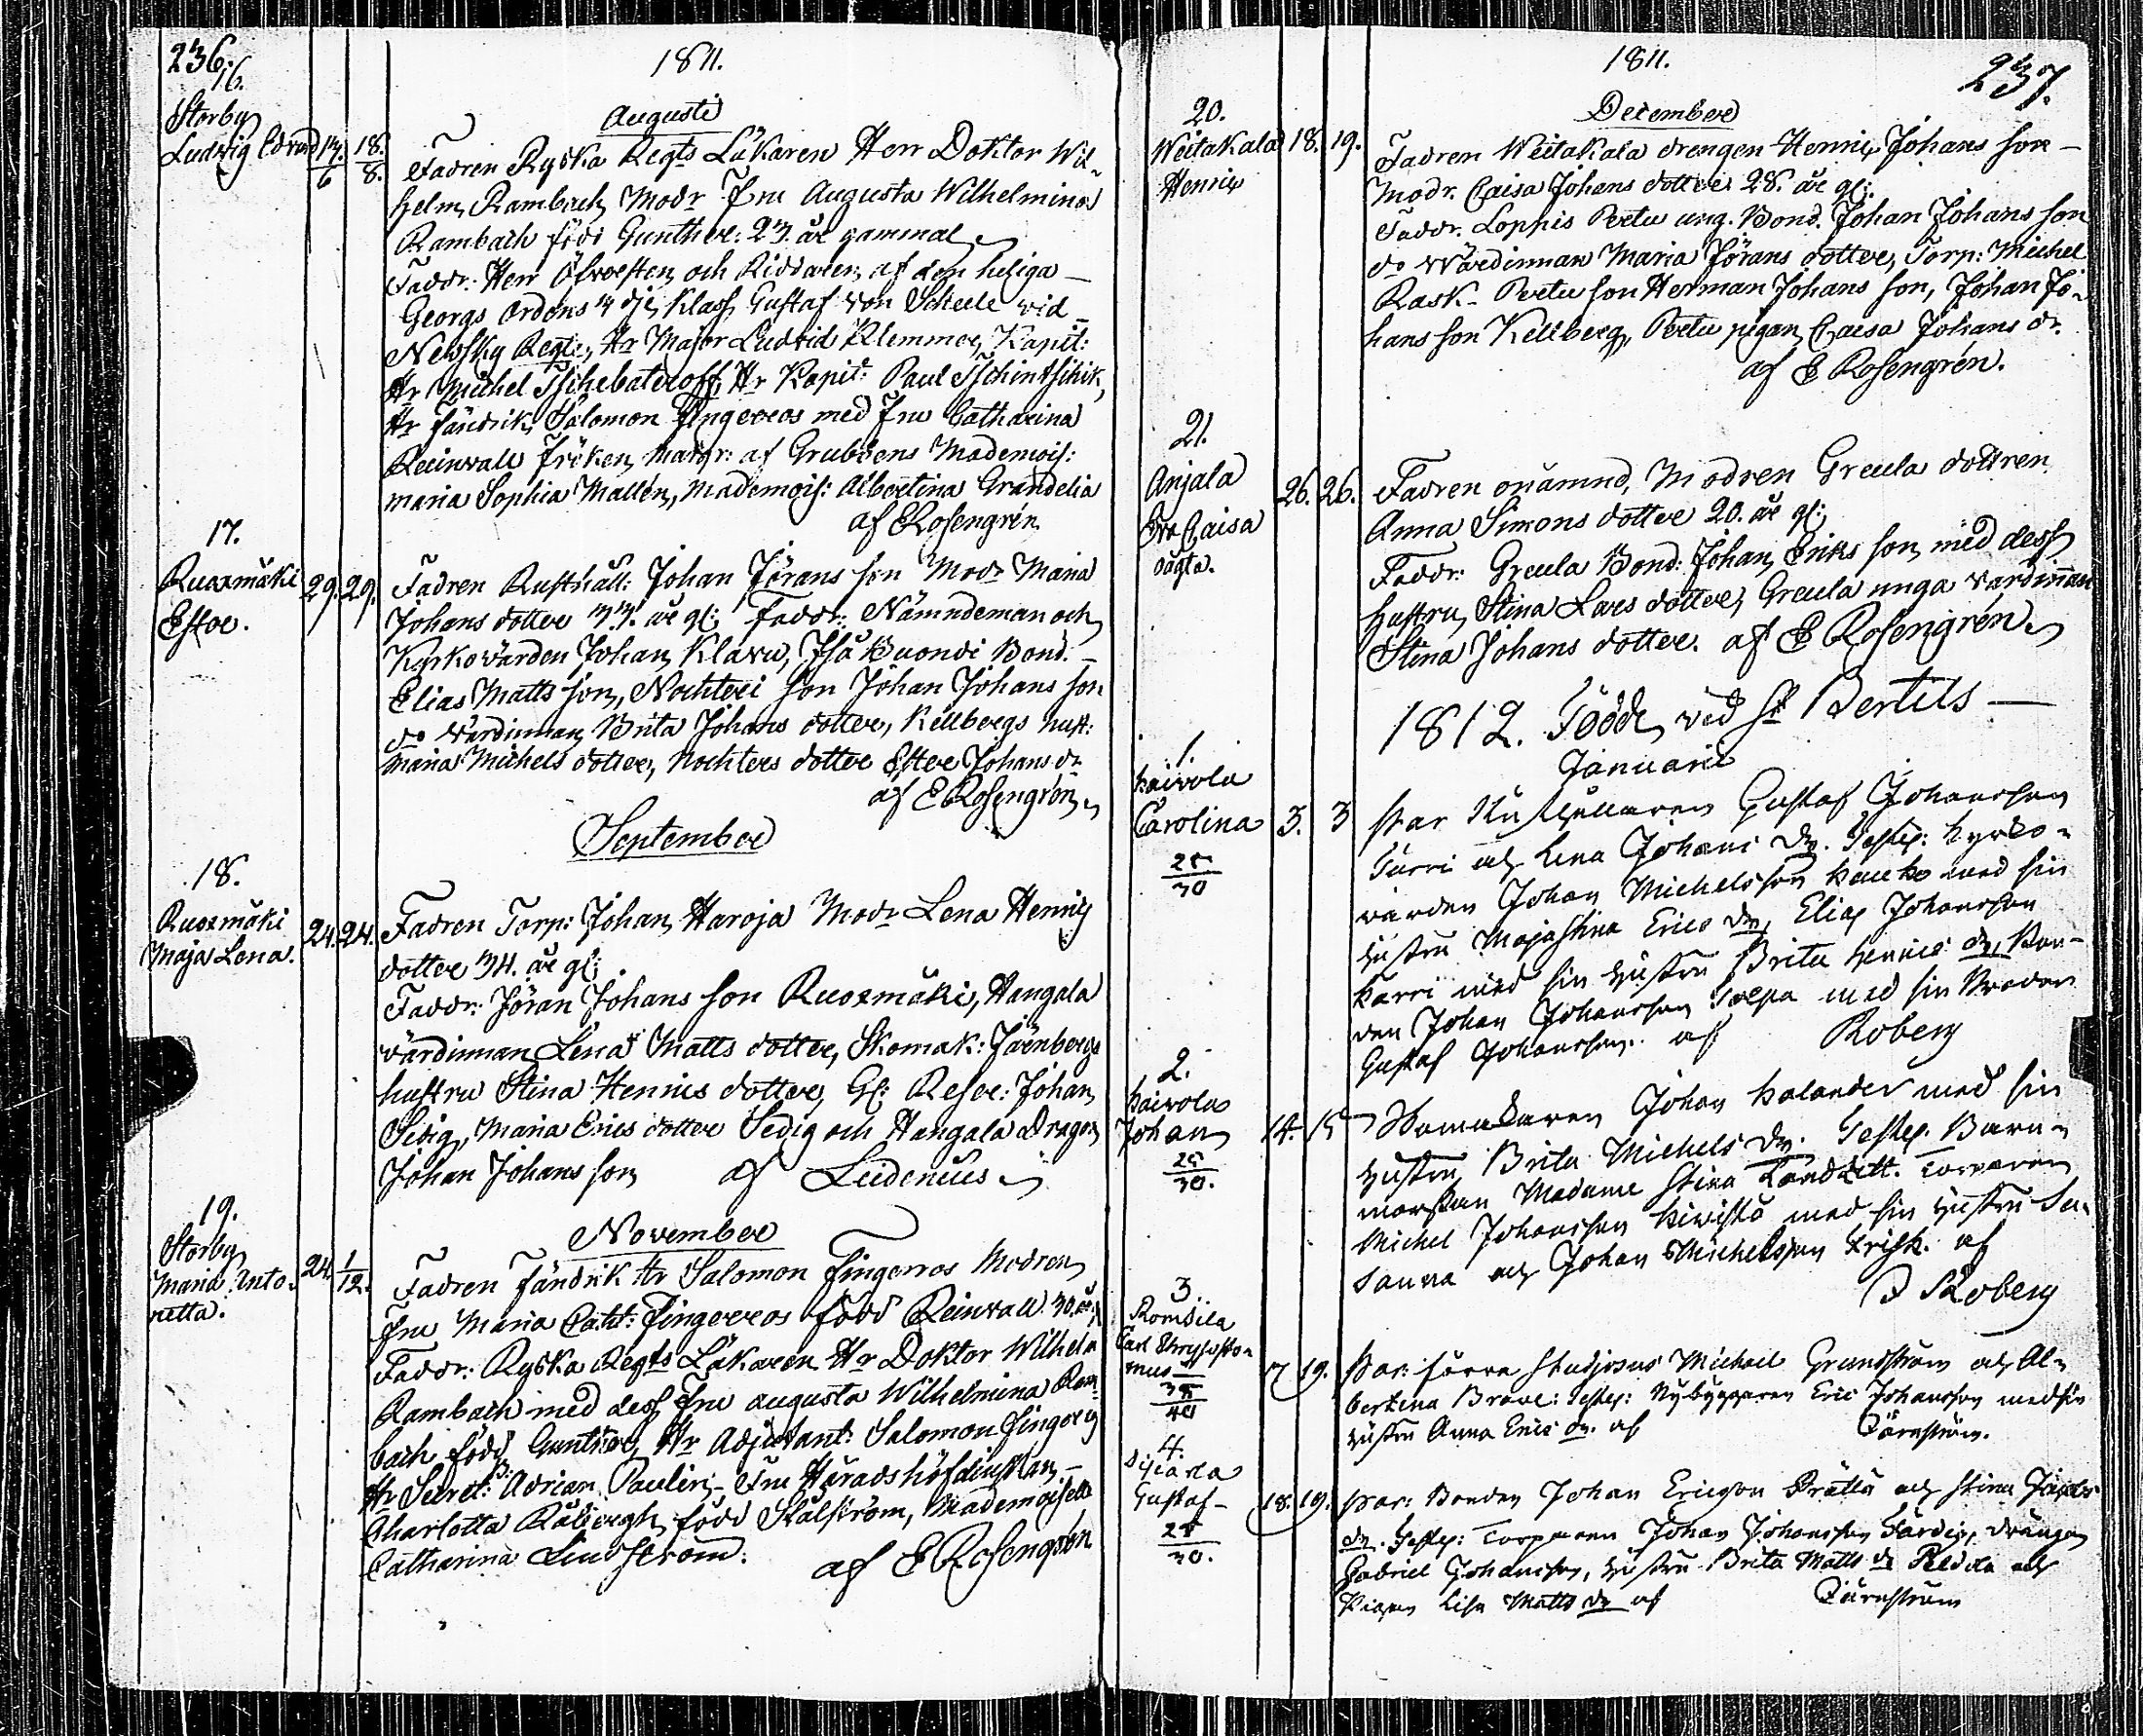 236.
1811.
Augusti
16.
Storby
Ludvig Edvard 17/6 18./8.
Fadren Ryska Regts Läkaren Herr Doktor Wil-
helm Rambach, Modr Fru Augusta Wilhelmina
Rambach född Gunther: 23. år gammal
Faddr: Herr Öfversten och Riddaren af den heliga
Georgs Ordens 4 dje Klass Gustaf von Scheele vid
Newsky Regte, Hr Major Ludvid Klemmer, Kapit:
Hr Michel Tschebateroff, Hr Kapit: Paul Tschintschik,
Hr Fändrik Salomon Fingerroos med Fru Catharina
Reinwall Fröken Margr: af Grubbens Mademois:
Maria Sophia Mallén, Mademois: Albertina Grandelia
af E Rosengrén
17.
Ruozmäki
Ester.
29. 29.
Fadren Rusthåll: Johan Jörans son Modr Maria
Johans dotter 33. år gl: Faddr: Nämndeman och
Kyrkovärden Johan Klavu, Isä Kuondi Bond.
Elias Matts son, Nochteri son Johan Johans son
do värdinnan Brita Johans dotter, Kellbergs hust:
Maria Michels dotter, Nochters dotter Ester Johans dr
af E Rosengrén
September
18.
Ruozmäki
Maja Lena.
24. 24.
Fadren Torp: Johan Haroja Modr Lena Henrics
dotter 34. år gl:
Faddr: Jöran Johans son Ruozmäki, Hangala
värdinnan Lena Matts dotter, Skomak: Järnbergs
hustru Stina Henrics dotter, Gl: Reser: Johan
Sedig, Maria Erics dotter Sedig och Hangala Dragon
Johan Johans son af Leidenius
November
19.
Storby
Maria Anto-
netta.
24. 1/12.
Fadren Fändrik Hr Salomon Fingerros Modren
Fru Maria Cath: Fingerroos född Reinwall 30. år
Faddr: Ryska Regts Läkaren Hr Doktor Wilhelm
Rambach med dess Fru Augusta Wilhelmina Ram-
bach född Gunther, Hr Adjutant: Salomon Fingerg
Hr Secret: Adrian Paulin, Fru Häradshöfdinskan
Charlotta Råbergh född Stålström, Mademoiselle
Catharina Lindström.
af E Rosengrén
1811.
237.
December
20.
Weitakala
Henric
18. 19.
Fadren Weitakala drengen Henric Johans son
Modr. Caisa Johans dotter 28. år gl:
Faddr. Loppis Pertu ung. Bond. Johan Johans son
do Wärdinnan Maria Jörans dotter, Torp: Michel
Rask- Pertu son Herman Johans son, Johan Jo-
hans son Kellberg, Pertu pigan Caisa Johans dr.
af E Rosengrén.
21.
Anjala
Eva Caisa
oägta.
26. 26.
Fadren onämnd, Modren Greula dottren
Anna Simons dotter 20. år gl:
Faddr: Greula Bond: Johan Ericks son med dess
hustru Stina Lars dotter, Greula unga värdinnan
Stina Johans dotter. af E Rosengrén
1812. Födde vid St Bertils
Januarii
1.
Kaivola
Carolina
25/30
3. 3
Par Rusthållaren Gustaf Johansson
Turri och Lena Johans dr. Testes: Kyrko-
värden Johan Michelsson Kauko med sin
hustru Majastina Erics dr, Elias Johansson
Karri med sin hustru Brita Henrics dr, Bon-
den Johan Johansson Torpa med sin Broder
Gustaf Johansson. af Roberg
2.
Kaivola
Johan
25/30.
14. 15
Skomakaren Johan Kalander med sin
hustru Brita Michels dr. Testes. Barn-
morskan Madame Stina Landzett. Torparen
Michel Johansson Kivistö med sin hustru Su-
sanna och Johan Michelsson Frisk. af
J Roberg
3.
Romsila
Carl Chrysosto-
mus
35/40
7 19.
Par: Förre Studiosus Michael Grundström och Al-
bertina Brave: Testes: Nybyggaren Eric Johansson med sin
hustru Anna Erics dr. af Törnström.
4.
Gustaf-
25/30.
18. 19.
Par: Bonden Johan Ericson Prättä och Stina
dr. Testes: Torparen Johan Johansson Färdig, Drängen
Gabriel Johansson, hustru Brita Matts dr Pedda och
Pigan Lisa Matts dr af Törnström